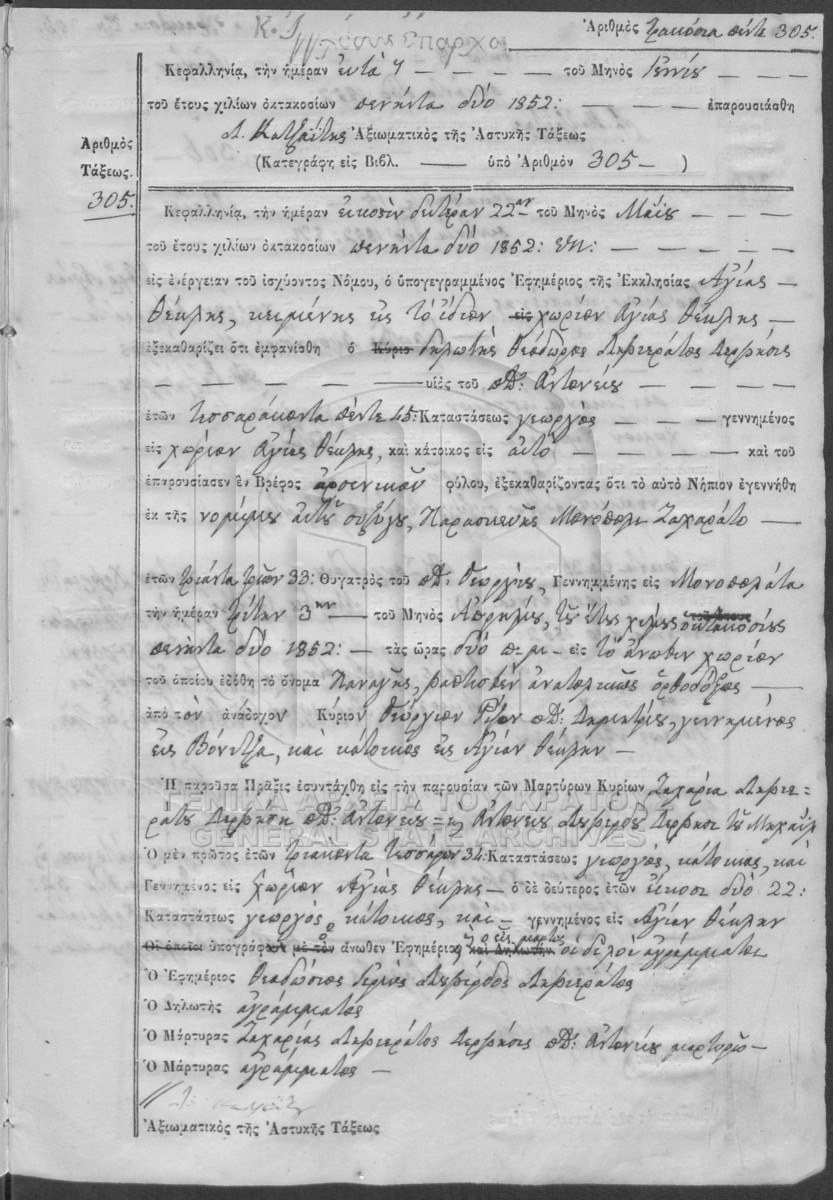 Ἀριθμὸς τρακόσια πέντε 305.
Κεφαλληνίᾳ, τὴν ἡμέραν ἑπτὰ 7 — — — — τοῦ Μηνὸς — — —
τοῦ ἔτους χιλίων ὀκτακοσίων πενήντα δύο 1852: — — — — — ἐπαρουσιάσθη
Ἀξιωματικὸς τῆς Ἀστυκῆς Τάξεως
(Κατεγράφη εἰς Βιβλ. —— ὑπὸ Ἀριθμὸν 305 — )
Ἀριθμὸς
Τάξεως.
305.
Κεφαλληνίᾳ, τὴν ἡμέραν εἰκοσὶν δευτέραν 22αν τοῦ Μηνὸς Μαΐου — — — —
τοῦ ἔτους χιλίων ὀκτακοσίων πενήντα δύο 1852: — — — —
εἰς ἐνέργειαν τοῦ ἰσχύοντος Νόμου, ὁ ὑπογεγραμμένος Ἐφημέριος τῆς Ἐκκλησίας Ἁγίας —
Θέκλης, κειμένης εἰς τὸ ἴδιον εἰς χωρίον Ἁγίας Θέκλης —
ἐξεκαθαρίζει ὅτι ἐμφανίσθη ὁ Κύριο δηλωτὴς Θεόδωρος
— — — — — υἱὸς τοῦ ποτ: Ἀντωνίου — — — —
ἐτῶν τεσσαράκοντα πέντε 45: Καταστάσεως γεωργὸς — — — — γεννημένος
εἰς χωρίον Ἁγίας Θέκλης, καὶ κάτοικος εἰς αὐτὸ — — — — — καὶ τοῦ
ἐπαρουσίασεν ἓν Βρέφος ἀρσενικοῦ φύλου, ἐξεκαθαρίζοντας ὅτι τὸ αὐτὸ Νήπιον ἐγεννήθη
ἐκ τῆς νομίμου αὐτοῦ συζύγου, Παρασκευῆς Ζαχαράτο —
ἐτῶν τριάντα τριῶν 33: Θυγατρὸς τοῦ ποτ: Γεωργίου, Γεννημμένης εἰς Μονοπολάτα
τὴν ἡμέραν τρίτην 3ην — τοῦ Μηνὸς Ἀπριλίου, τοῦ ἔτους χιλίους ὀκτακοσίους
πενήντα δύο 1852: — τὰς ὥρας δύο — εἰς τὸ ἄνωθεν χωρίον
τοῦ ὁποίου ἐδόθη τὸ ὄνομα Παναγῆς, βαπτισθὲν ἀνατολικῶς ὀρθοδόξως —
ἀπὸ τὸν ἀνάδοχον Κύριον Γεώργιον ποτ: Δημητρίου, γεννημένος
εἰς Βόνιτζα, καὶ κάτοικος εἰς Ἁγίαν Θέκλην —
Ἡ παροῦσα Πρᾶξις ἐσυντάχθη εἰς τὴν παρουσίαν τῶν Μαρτύρων Κυρίων Ζαχαρία
ποτ: Ἀντωνίου = Ἀντωνίου τοῦ Μιχαὴλ
ΓΕΝΙΚΑ ΑΡΧΕΙΑ ΤΟΥ ΚΡΑΤΟΥΣ
GENERAL STATE ARCHIVES
Ὁ μὲν πρῶτος ἐτῶν τριακοντα τεσσάρων 34: Καταστάσεως γεωργὸς, κάτοικος, καὶ
Γεννημένος εἰς χωρίον Ἁγίας Θέκλης — ὁ δὲ δεύτερος ἐτῶν εἴκοσι δύο 22:
Καταστάσεως γεωργὸς, κάτοικος, καὶ — γεννημένος εἰς Ἁγίαν Θέκλην
Οἱ ὁποῖοι ὑπογράφ μὲ τὸν ἄνωθεν Ἐφημέριον καὶ Δηλωτὴν ἀγράμματοι
Ὁ Ἐφημέριος Θεοδόσιος
Ὁ Δηλωτὴς ἀγράμματος
Ὁ Μάρτυρας Ζαχαρίας ποτ: Ἀντωνίου μαρτυρῶ —
Ὁ Μάρτυρας ἀγράμματος —
Ἀξιωματικὸς τῆς Ἀστυκῆς Τάξεως